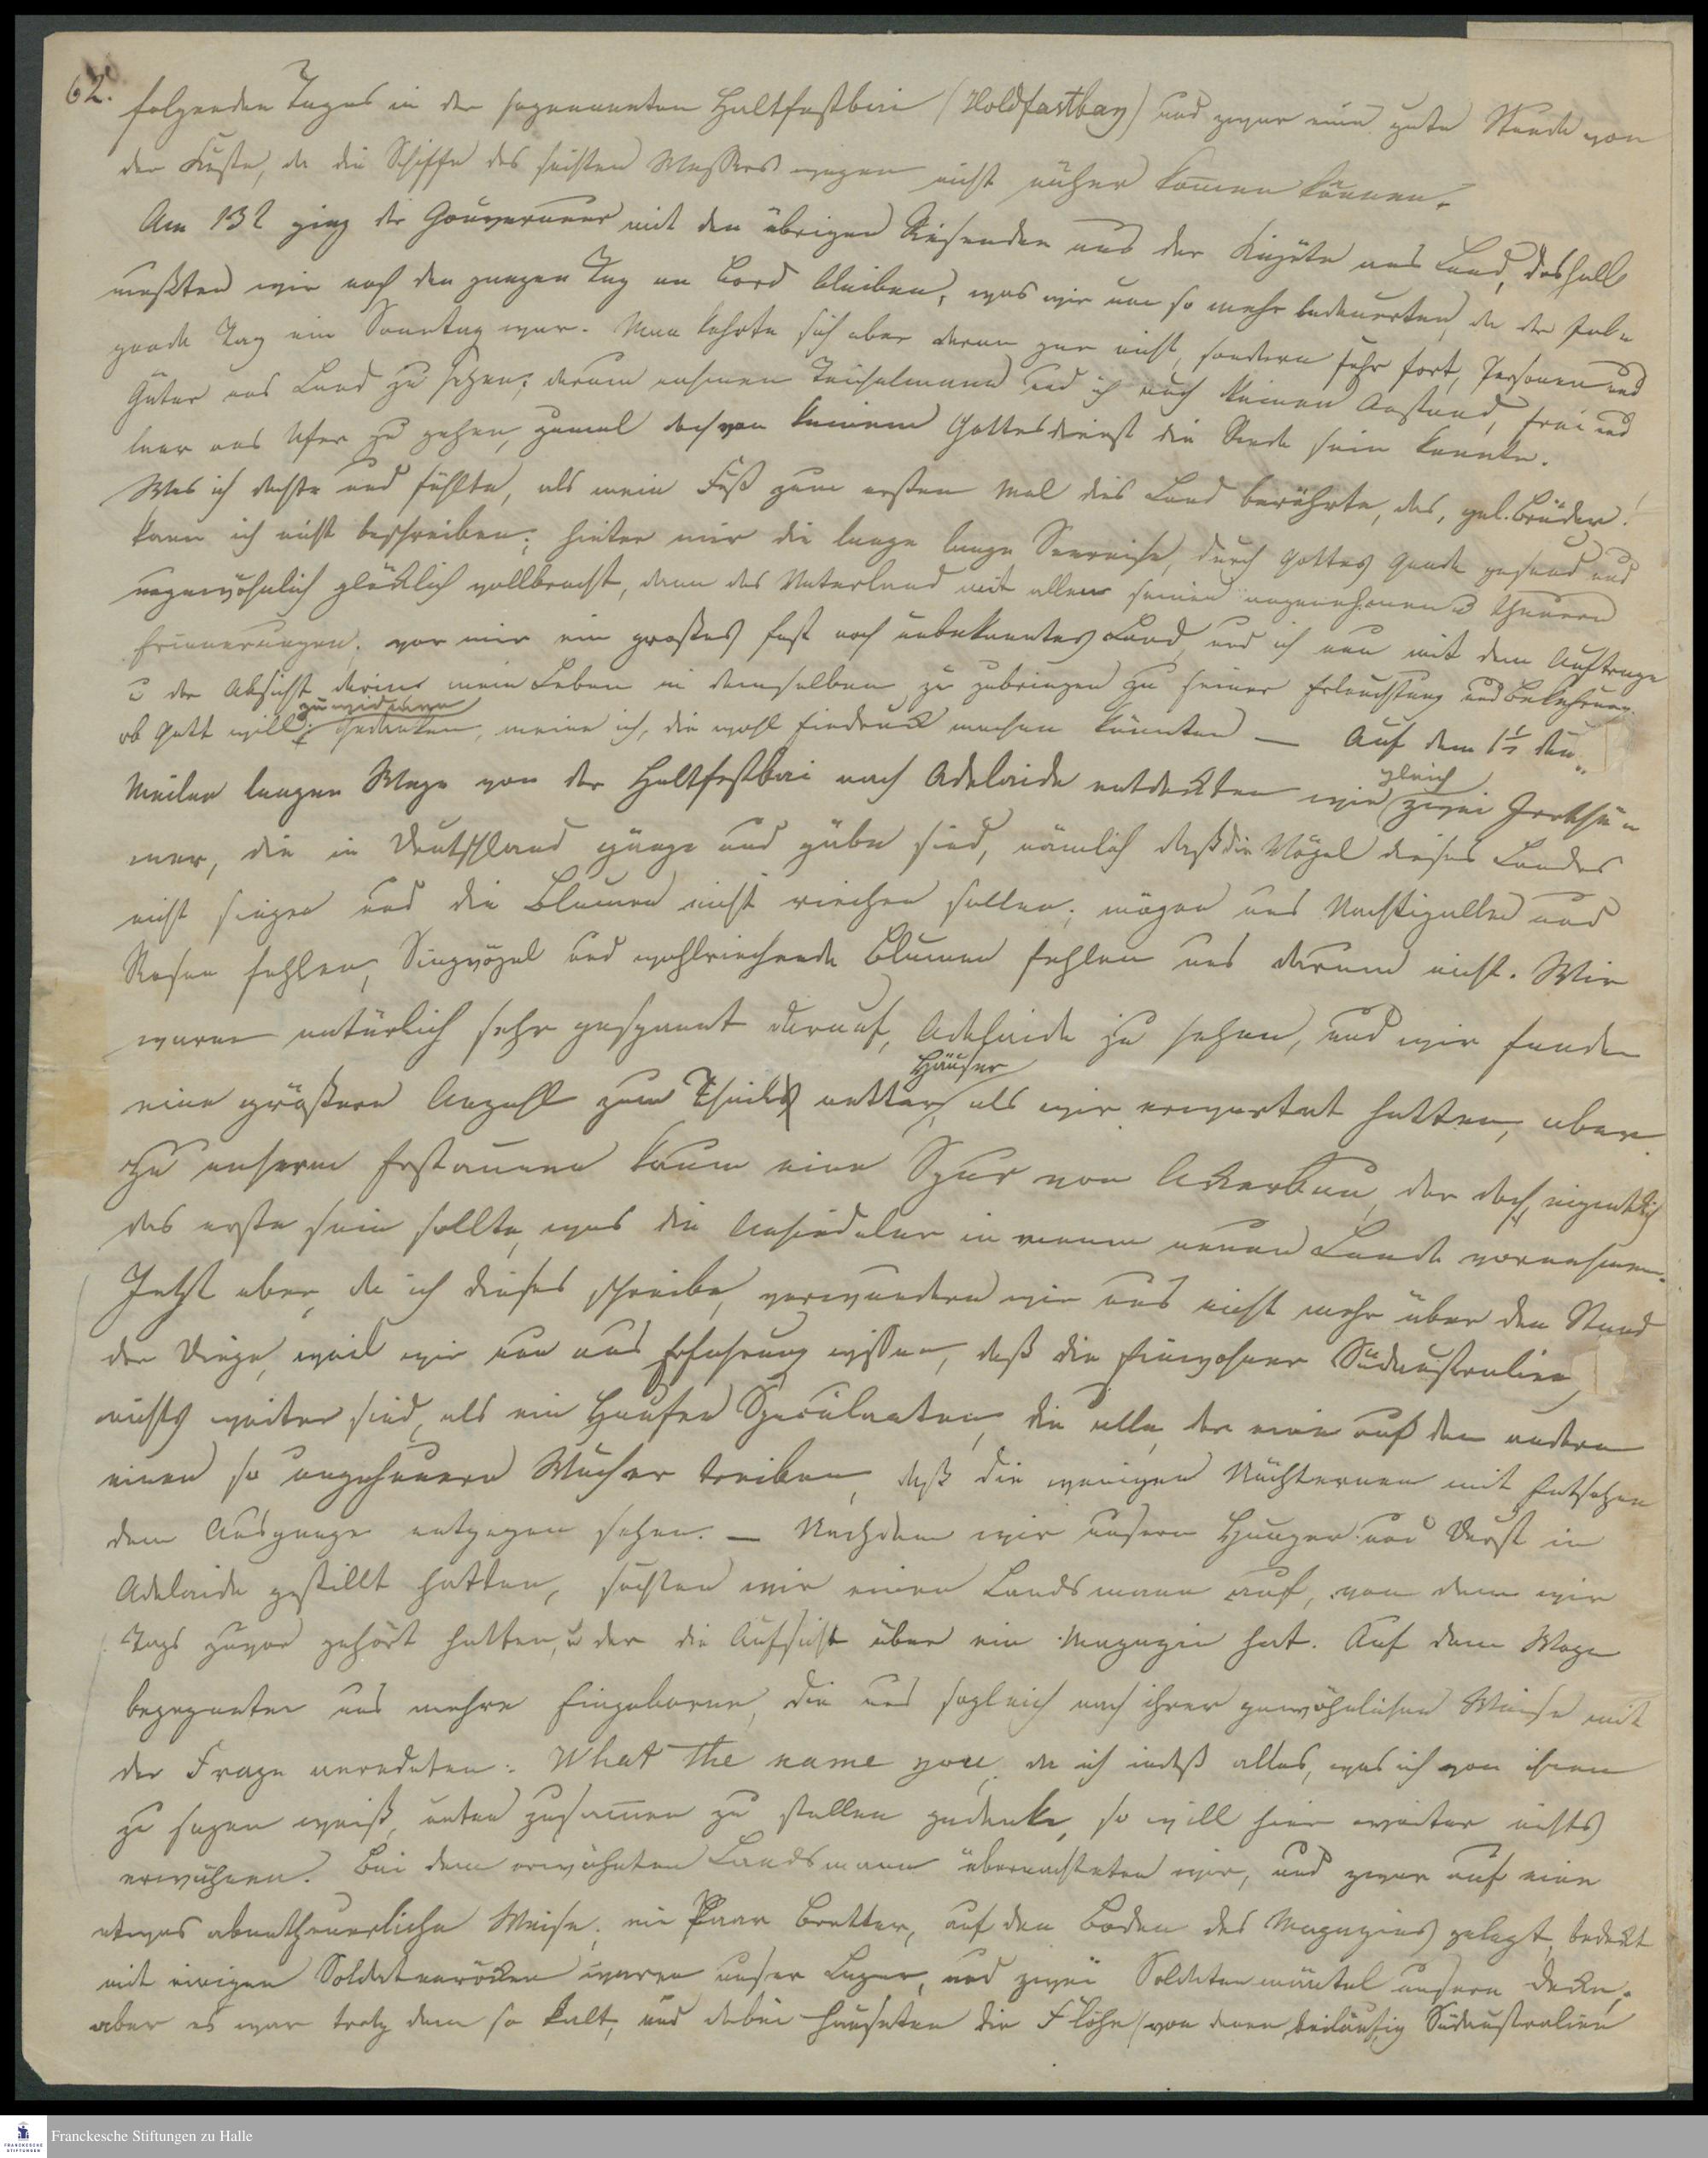 62.
folgenden Tages in der sogenannten Haltfastbai (Holdfastbay) und zwar eine gute Stunde von
der Küste, da die Schiffe des seichten Wassers wegen nicht näher kommen können.
Am 13t ging der Gouverneur mit den übrigen Reisenden aus der Kajüte ans Land, deshalb
mußten wir noch den ganzen Tag an Bord bleiben, was wir um so mehr bedauerten, da der fol-
gende Tag ein Sonntag war. Man kehrte sich aber daran gar nicht, sondern fuhr fort, Personen und
Güter ans Land zu setzen; darum nahmen Teichelmann und ich auch keinen Anstand, frei und
leer ans Ufer zu gehen, zumal doch von keinem Gottesdienst die Rede sein konnte.
Was ich dachte und fühlte, als mein Fuß zum ersten Mal dies Land berührte, das, gel. Brüder!
kann ich nicht beschreiben; hinter mir die lange lange Seereise, durch Gottes Gnade gesund und
ungewöhnlich glücklich vollbracht, dann das Vaterland mit allen seinen angenehmen u theuern
Erinnerungen; vor mir ein großes fast noch unbekanntes Land, und ich nun mit dem Auftrage
u der Absicht, mein Leben in demselben zu zubringen zu seiner Erleuchtung und Bekehrung
zu widmen
ob Gott will; Gedanken, meine ich, die wohl Eindruck machen könnten — Auf dem 1½ deu-
gleich
Meilen langen Wege von der Haltfastbai nach Adelaide entdeckten wir zwei Irrthü-
mer, die in Deutschland gänge und gäbe sind, nämlich daß die Vögel dieses Landes
nicht singen und die Blumen nicht riechen sollen; mögen uns Nachtigallen und
Rosen fehlen, Singvögel und wohlriechende Blumen fehlen uns darum nicht. Wir
waren natürlich sehr gespannt darauf, Adelaide zu sehen, und wir fanden
Häuser
eine größere Anzahl zum Theil netter, als wir erwartet hatten, aber
zu unserm Erstaunen kaum eine Spur von Ackerbau, der doch eigentlich
das erste sein sollte, was die Ansiedeler in einem neuen Lande vornehmen.
Jetzt aber, da ich dieses schreibe, verwundern wir uns nicht mehr über den Stand
der Dinge, weil wir nun aus Erfahrung wissen, daß die Einwohner Südaustralien
nichts weiter sind, als ein Haufen Speculanten, die alle, der eine auf den andern
einen so ungeheuern Wucher treiben, daß die wenigen Nüchternen mit Entsetzen
dem Ausgange entgegen sehen. — Nachdem wir unsern Hunger und Durst in
Adelaide gestillt hatten, suchten wir einen Landsmann auf, von dem wir
Tags zuvor gehört hatten, u der die Aufsicht über ein Magazin hat. Auf dem Wege
begegneten uns mehre Eingeborne, die uns sogleich nach ihrer gewöhnlichen Weise mit
der Frage anredeten: What the name you, da ich indeß alles, was ich von ihnen
zu sagen weiß, unten zusammen zu stellen gedenke, so will hier weiter nichts
erwähnen. Bei dem erwähnten Landsmann übernachteten wir, und zwar auf eine
etwas abentheuerliche Weise; ein Paar Bretter, auf den Boden des Magazins gelegt, bedeckt
mit einigen Soldatenröcken waren unser Lager, und zwei Soldatenmäntel unsere Decken;
aber es war trotz dem so kalt, und dabei hauseten die Flöhe (von denen beiläufig Südaustralien
Franckesche Stiftungen zu Halle